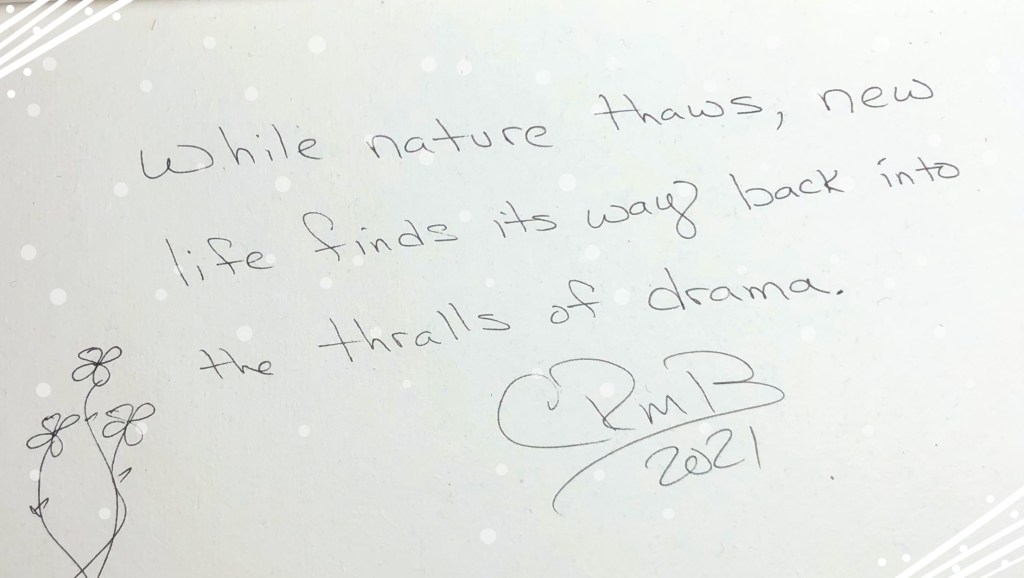 While nature thaws, new
life finds its way back into
the thralls of drama.
CRMB
2021